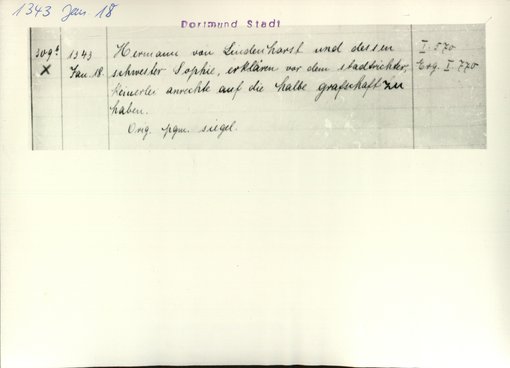 1343 Jan 18
Dortmund Stadt
1343
Jan. 18
Hermann von Lindenhorst und dessen
schwester Sophie, erklären vor dem stadtrichter,
keinerlei anrechte auf die halbe grafschaft zu
haben.
Orig. pgm. siegel.
I. 570
Erg. I. 770
X